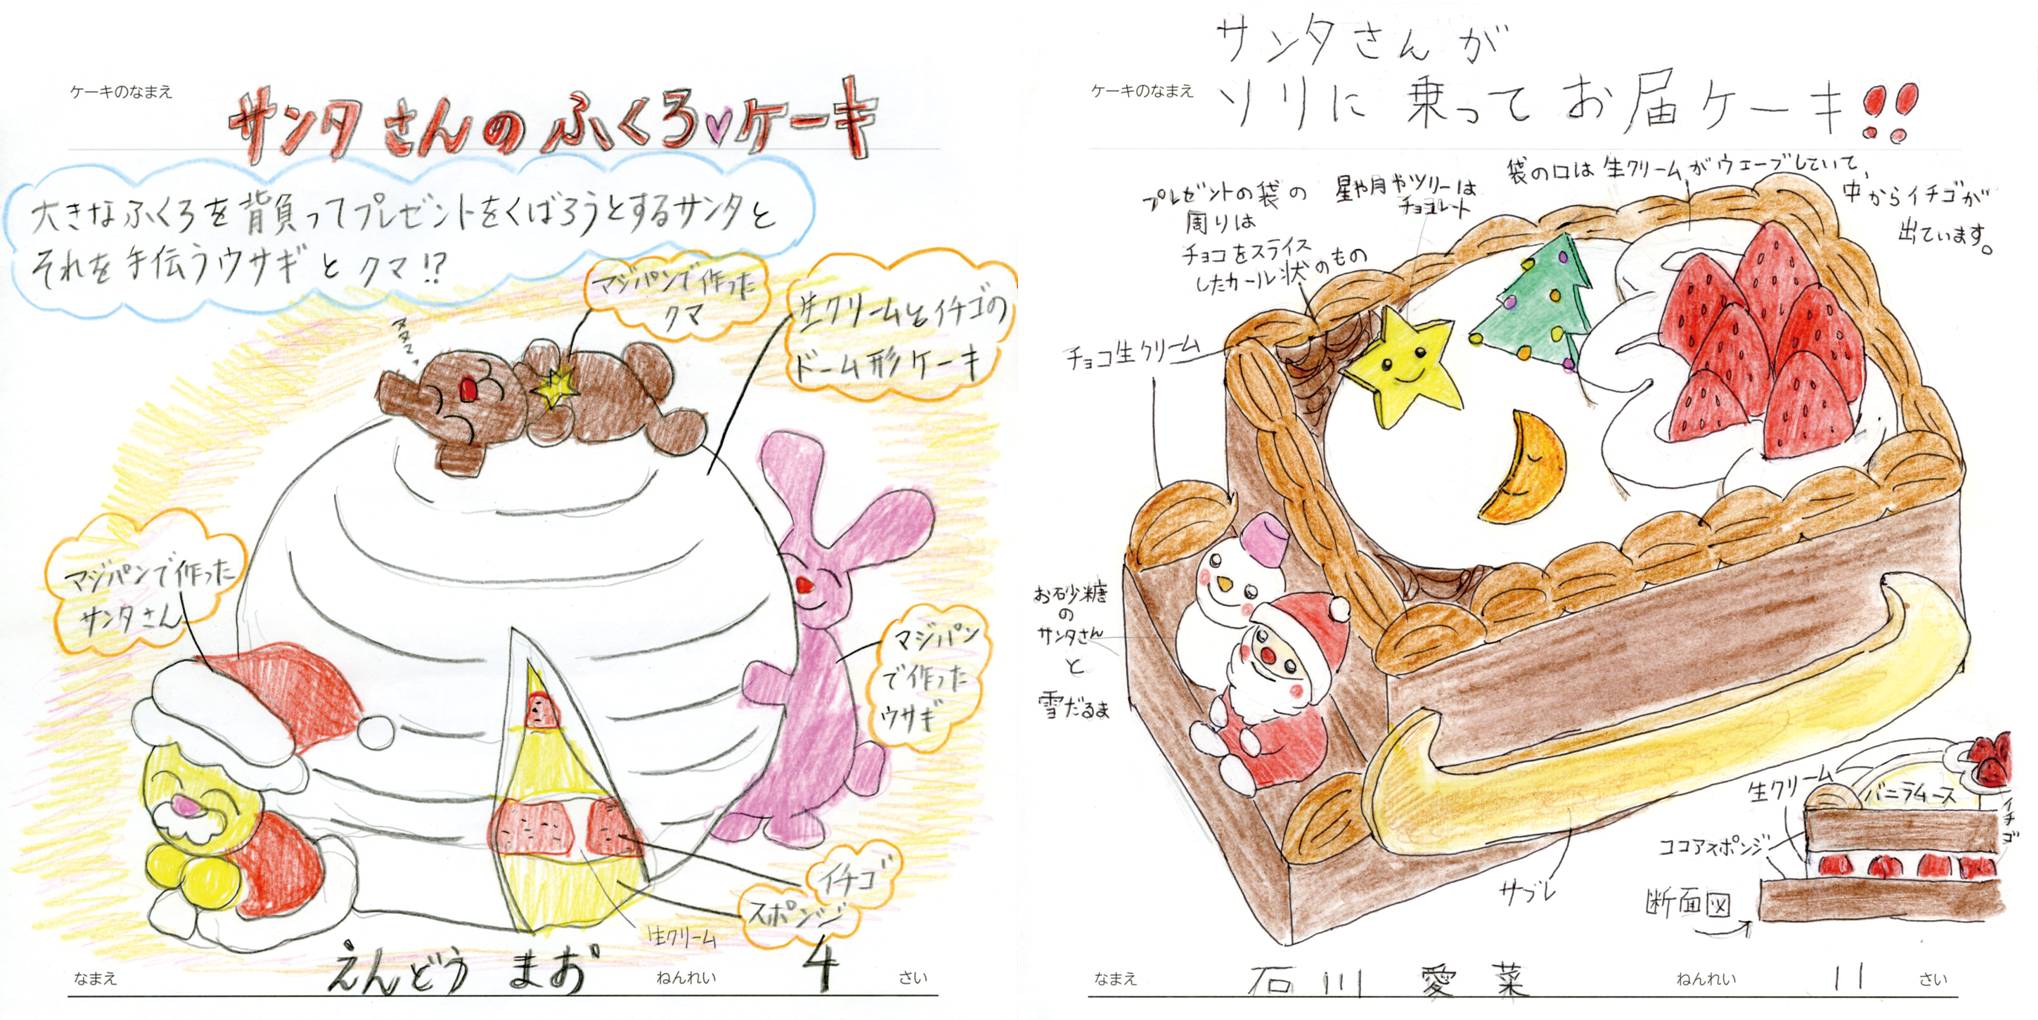 ケーキのなまえ
サンタさんのふくろ♡ケーキ
大きなふくろを背負ってプレゼントをくばろうとするサンタと
それを手伝うウサギとクマ!?
マジパンで作った
クマ
生クリームとイチゴの
ドーム形ケーキ
マジパンで作った
サンタさん
マジパン
で作った
ウサギ
イチゴ
スポンジ
生クリーム
なまえ
えんどう まお
ねんれい
4
さい
サンタさんが
ケーキのなまえ
ソリに乗ってお届ケーキ!!
プレゼントの袋の
周りは
チョコをスライス
したカール状のもの
星や月やツリーは
チョコレート
袋の口は生クリームがウェーブしていて、
中からイチゴが
出ています。
チョコ生クリーム
お砂糖
の
サンタさん
と
雪だるま
サブレ
生クリーム
バニラムース
イチゴ
ココアスポンジ
断面図
なまえ
石川 愛菜
ねんれい
11
さい